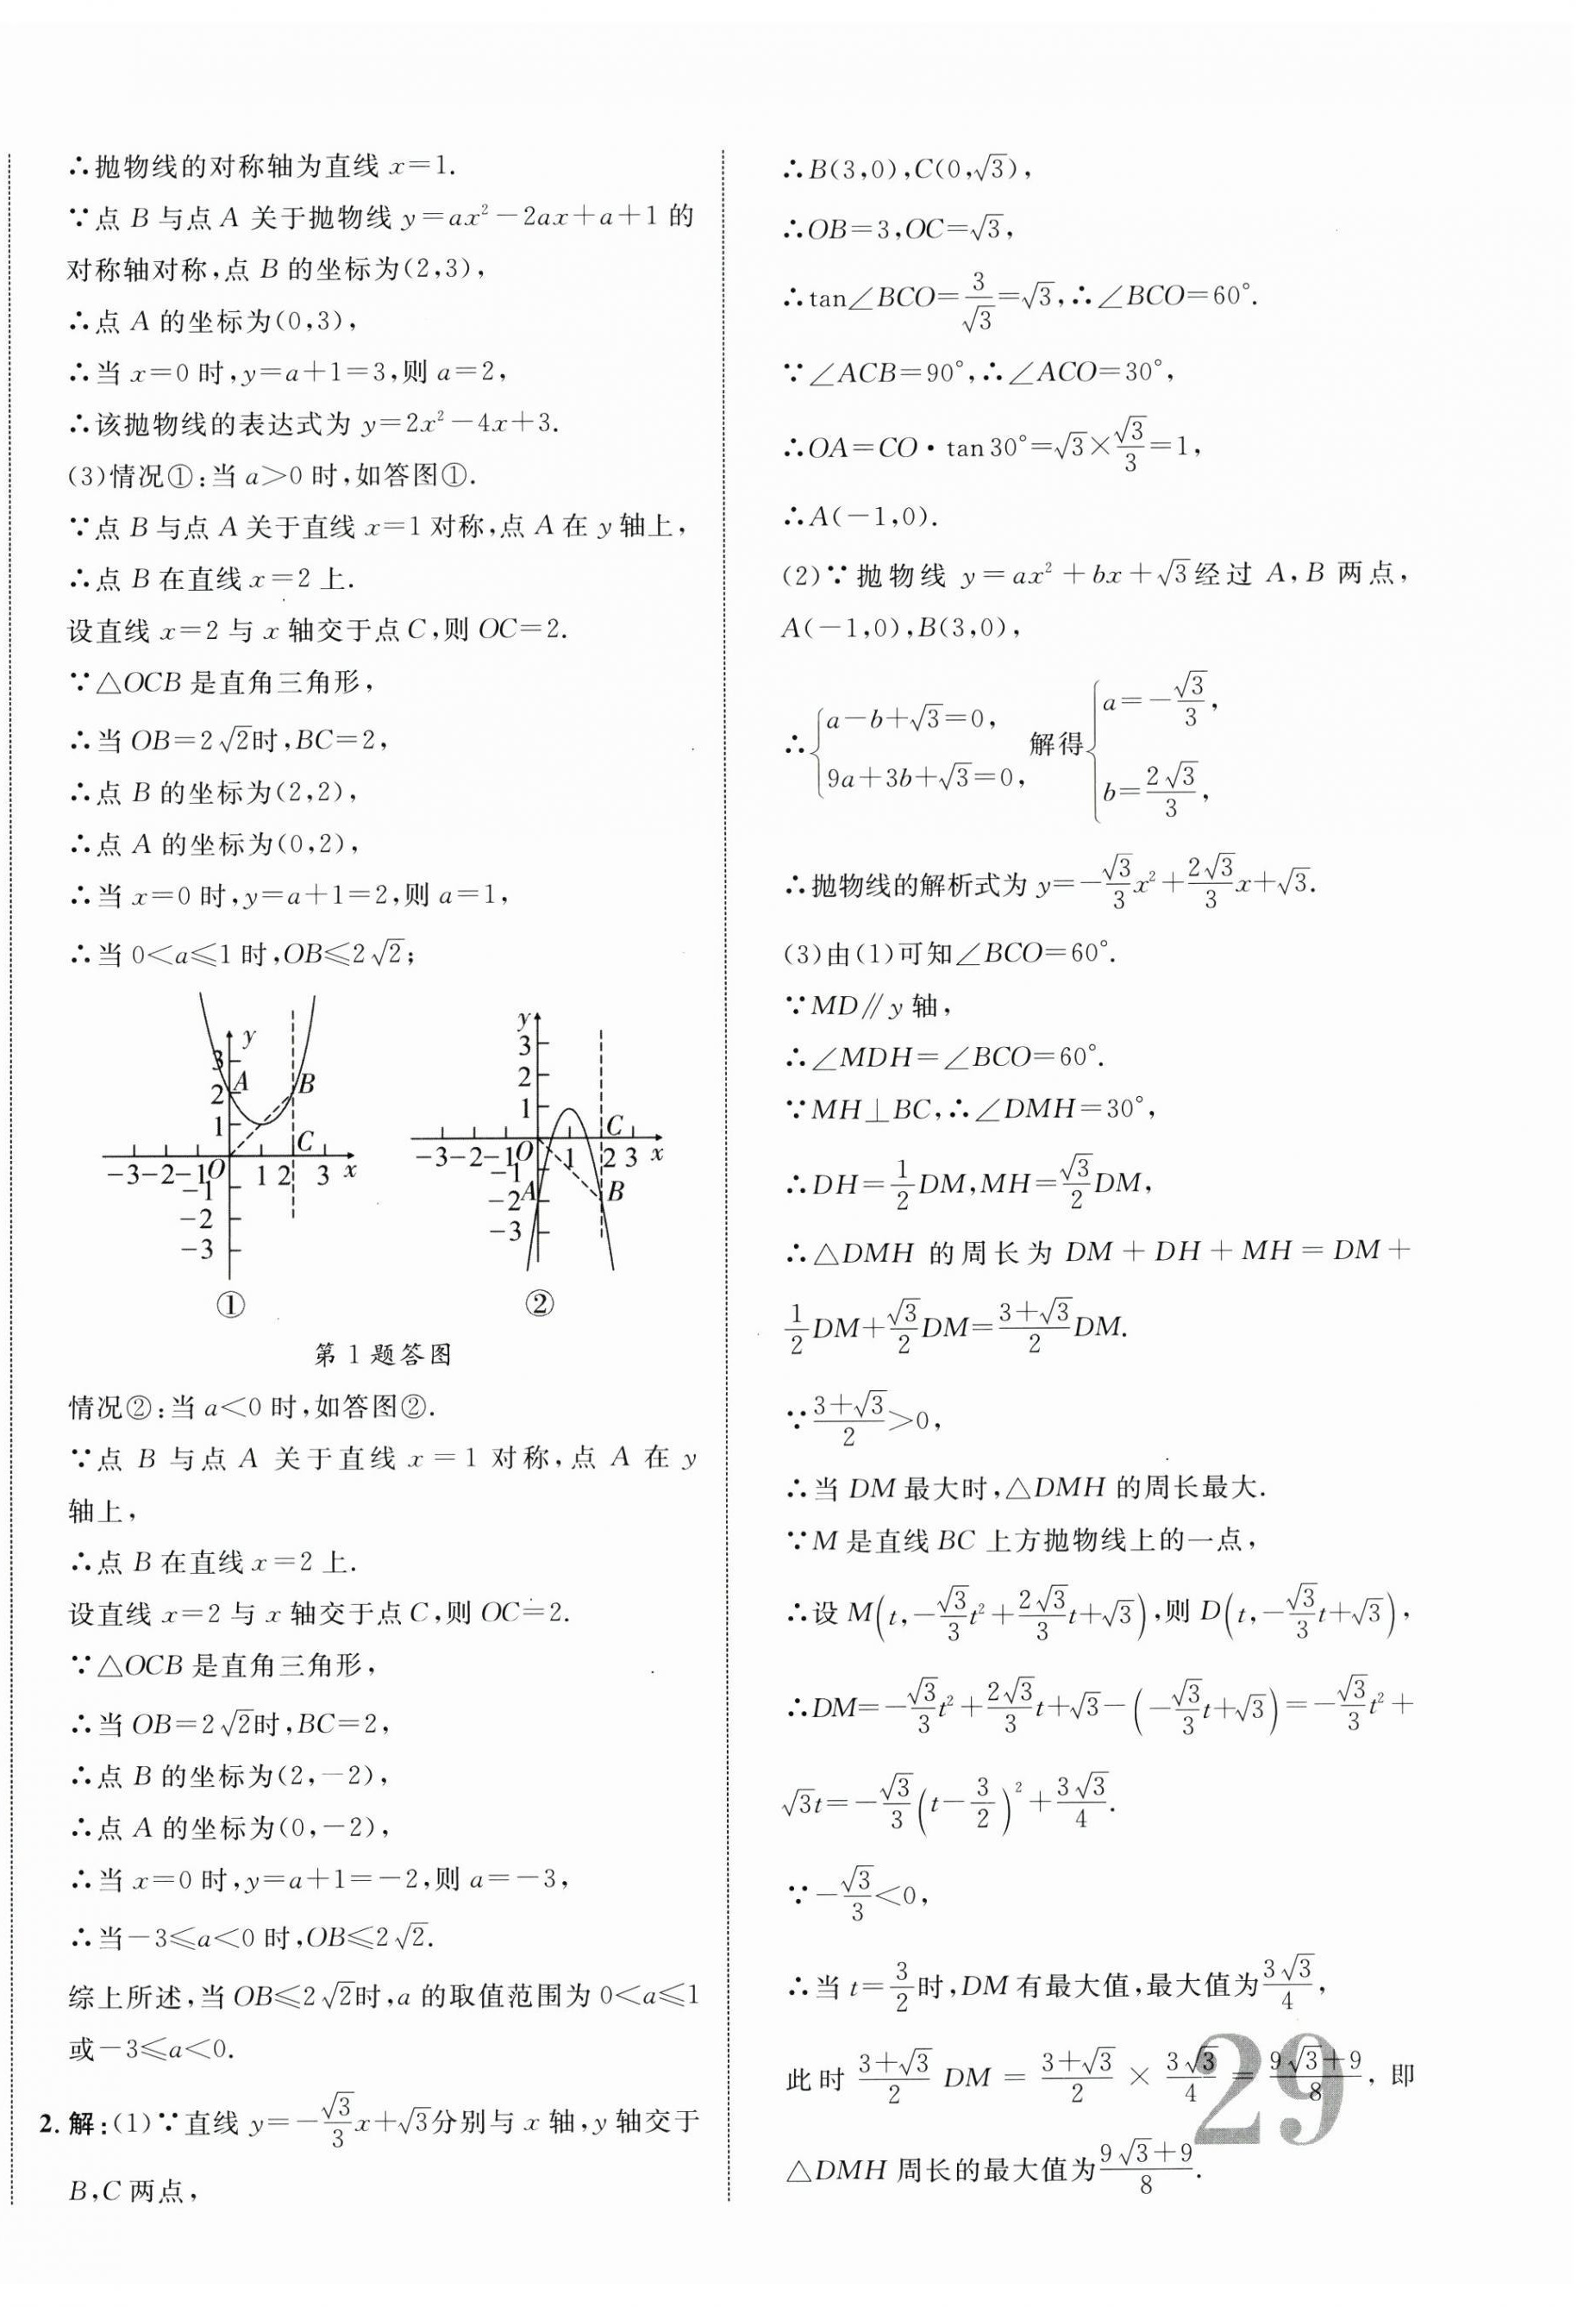 ∴抛物线的对称轴为直线 x=1.
∵点 B 与点 A 关于抛物线 y=ax²-2ax+a+1 的
对称轴对称,点 B 的坐标为(2,3),
∴点 A 的坐标为(0,3),
∴当 x=0 时,y=a+1=3,则 a=2,
∴该抛物线的表达式为 y=2x²-4x+3.
(3)情况①:当 a>0 时,如答图①.
∵点 B 与点 A 关于直线 x=1 对称,点 A 在 y 轴上,
∴点 B 在直线 x=2 上.
设直线 x=2 与 x 轴交于点 C,则 OC=2.
∵△OCB 是直角三角形,
∴当 OB=2√2时,BC=2,
∴点 B 的坐标为(2,2),
∴点 A 的坐标为(0,2),
∴当 x=0 时,y=a+1=2,则 a=1,
∴当 0<a≤1 时,OB≤2√2;
y
3
2 A B
1 C
-3 -2 -1 O 1 2 3 x
-1
-2
-3
①
y
3
2
1 C
-3 -2 -1 O 1 2 3 x
-1
-2 A B
-3
②
第 1 题答图
情况②:当 a<0 时,如答图②.
∵点 B 与点 A 关于直线 x=1 对称,点 A 在 y
轴上,
∴点 B 在直线 x=2 上.
设直线 x=2 与 x 轴交于点 C,则 OC=2.
∵△OCB 是直角三角形,
∴当 OB=2√2时,BC=2,
∴点 B 的坐标为(2,-2),
∴点 A 的坐标为(0,-2),
∴当 x=0 时,y=a+1=-2,则 a=-3,
∴当-3≤a<0 时,OB≤2√2.
综上所述,当 OB≤2√2时,a 的取值范围为 0<a≤1
或-3≤a<0.
2.解:(1)∵直线 y=-√3/3x+√3分别与 x 轴,y 轴交于
B,C 两点,
∴B(3,0),C(0,√3),
∴OB=3,OC=√3,
∴tan∠BCO=3/√3=√3,∴∠BCO=60°.
∵∠ACB=90°,∴∠ACO=30°,
∴OA=CO·tan30°=√3×√3/3=1,
∴A(-1,0).
(2)∵抛物线 y=ax²+bx+√3经过 A,B 两点,
A(-1,0),B(3,0),
∴{a-b+√3=0, 9a+3b+√3=0, 解得{a=-√3/3, b=2√3/3,
∴抛物线的解析式为 y=-√3/3x²+2√3/3x+√3.
(3)由(1)可知∠BCO=60°.
∵MD∥y 轴,
∴∠MDH=∠BCO=60°.
∵MH⊥BC,∴∠DMH=30°,
∴DH=1/2DM,MH=√3/2DM,
∴△DMH 的周长为 DM+DH+MH=DM+
1/2DM+√3/2DM=(3+√3)/2DM.
∵(3+√3)/2>0,
∴当 DM 最大时,△DMH 的周长最大.
∵M 是直线 BC 上方抛物线上的一点,
∴设 M(t,-√3/3t²+2√3/3t+√3),则 D(t,-√3/3t+√3),
∴DM=-√3/3t²+2√3/3t+√3-(-√3/3t+√3)=-√3/3t²+
√3t=-√3/3(t-3/2)²+3√3/4.
∵-√3/3<0,
∴当 t=3/2时,DM 有最大值,最大值为3√3/4,
此时 (3+√3)/2 DM=(3+√3)/2×3√3/4=(9√3+9)/8,即
△DMH 周长的最大值为(9√3+9)/8.
29